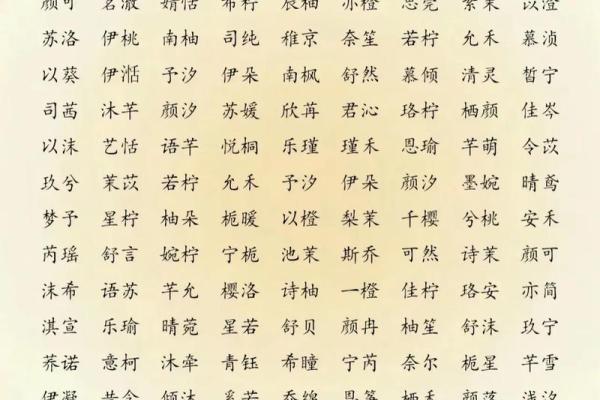 颜可 茗澈 婧恬 希柠 辰柚 亦橙 思菀 紫茉 以澄
苏洛 伊桃 南柚 司纯 稚京 奈笙 若柠 允禾 慕浈
以葵 伊湉 予汐 伊朵 南枫 舒然 慕倾 清灵 皙宁
司茜 沐芊 颜汐 苏媛 欣苒 君沁 珞柠 栖颜 佳岑
以沫 艺恬 语芊 悦桐 乐瑾 瑾禾 恩瑜 芊萌 令苡
玖兮 茉苡 若柠 允禾 予汐 伊朵 颜汐 墨婉 晴鸢
梦予 星柠 柚朵 栀暖 以橙 梨茉 千樱 兮桃 安禾
芮瑶 舒言 婉柠 宁栀 池茉 斯乔 可然 诗茉 颜可
沫希 语苏 芊允 樱洛 诗柚 一橙 佳柠 珞安 亦简
淇宣 乐瑜 晴菀 星若 舒贝 颜冉 柚笙 舒沫 玖宁
荞诺 意柯 沐牵 青钰 希瞳 宁芮 奈尔 栀星 芊雪
伊凝 昔念 倾沐 奚若 乔绵 栖禾 颜落 浅汐